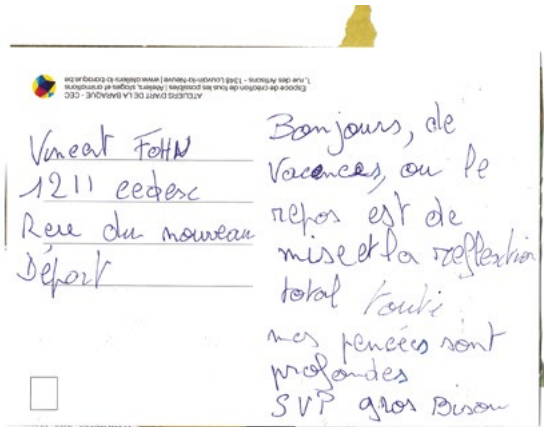 ATELIERS D'ART DE LA BARAQUE - CEC
Espace de création de tous les possibles | Ateliers, stages et animations
1, rue des Artisans - 1348 Louvain-la-Neuve | www.ateliers-la-baraque.be
Vincent FOHN
1211 cedesc
Rue du nouveau
Départ
Bonjours, de
Vacances, ou le
repos est de
mise et la reflextion
total
mes pencées sont
profondes
SVP gros Bison